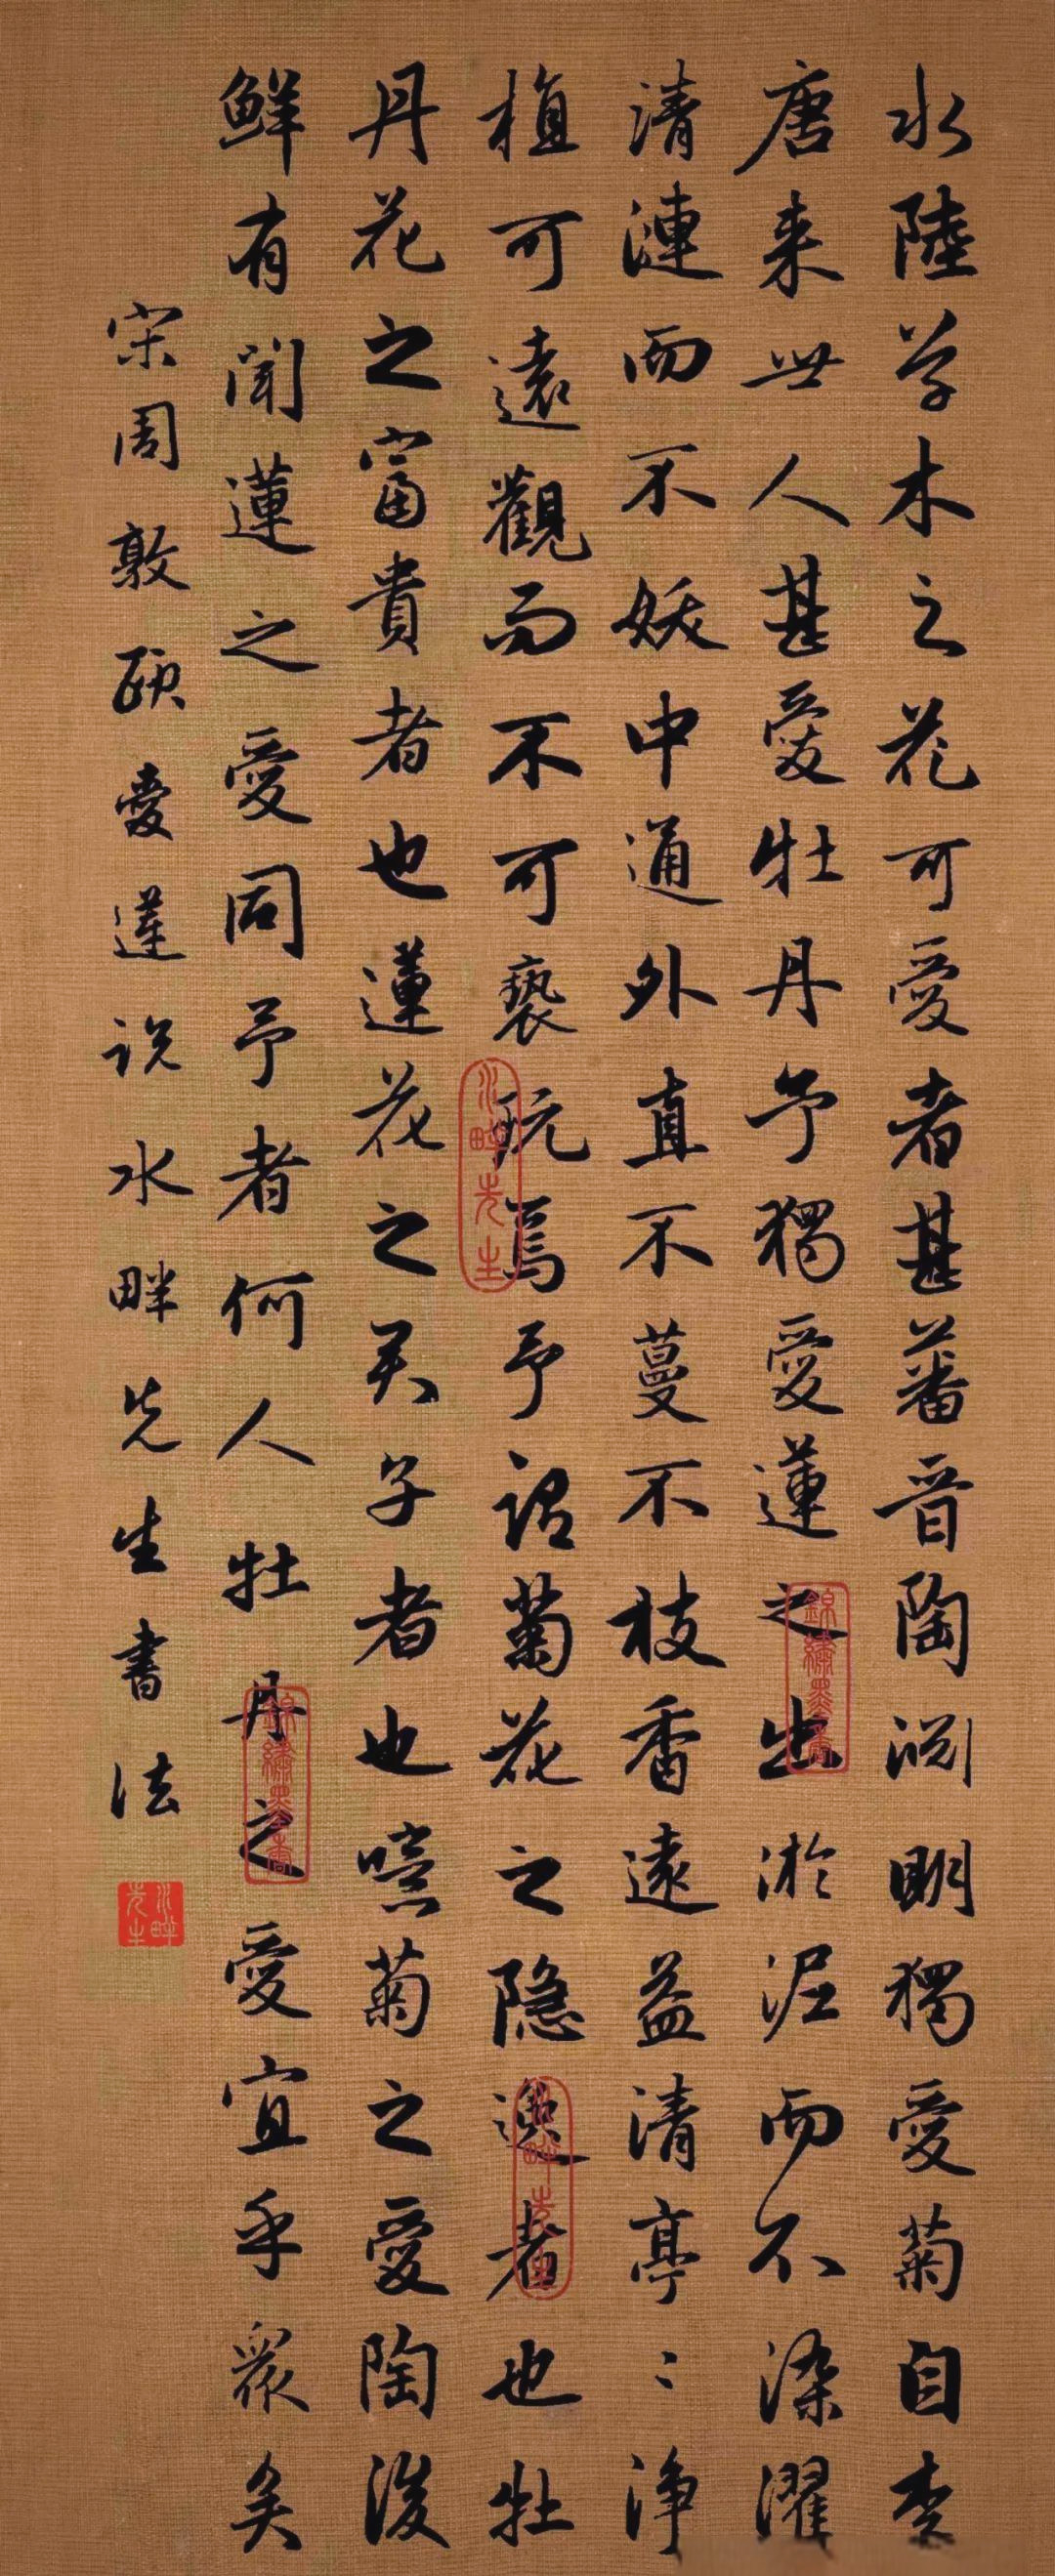 水陸草木之花可愛者甚蕃晉陶渊明獨愛菊自李
唐来世人甚愛牡丹予獨愛蓮之出淤泥而不染濯
清漣而不妖中通外直不蔓不枝香遠益清亭〻淨
植可遠觀而不可褻玩焉予謂菊花之隐逸者也牡
丹花之富貴者也蓮花之君子者也噫菊之愛陶後
鮮有聞蓮之愛同予者何人牡丹之愛宜乎衆矣
宋周敦頤愛蓮説水畔先生書法
水畔先生
錦繡墨香
水畔先生
錦繡墨香
水畔先生